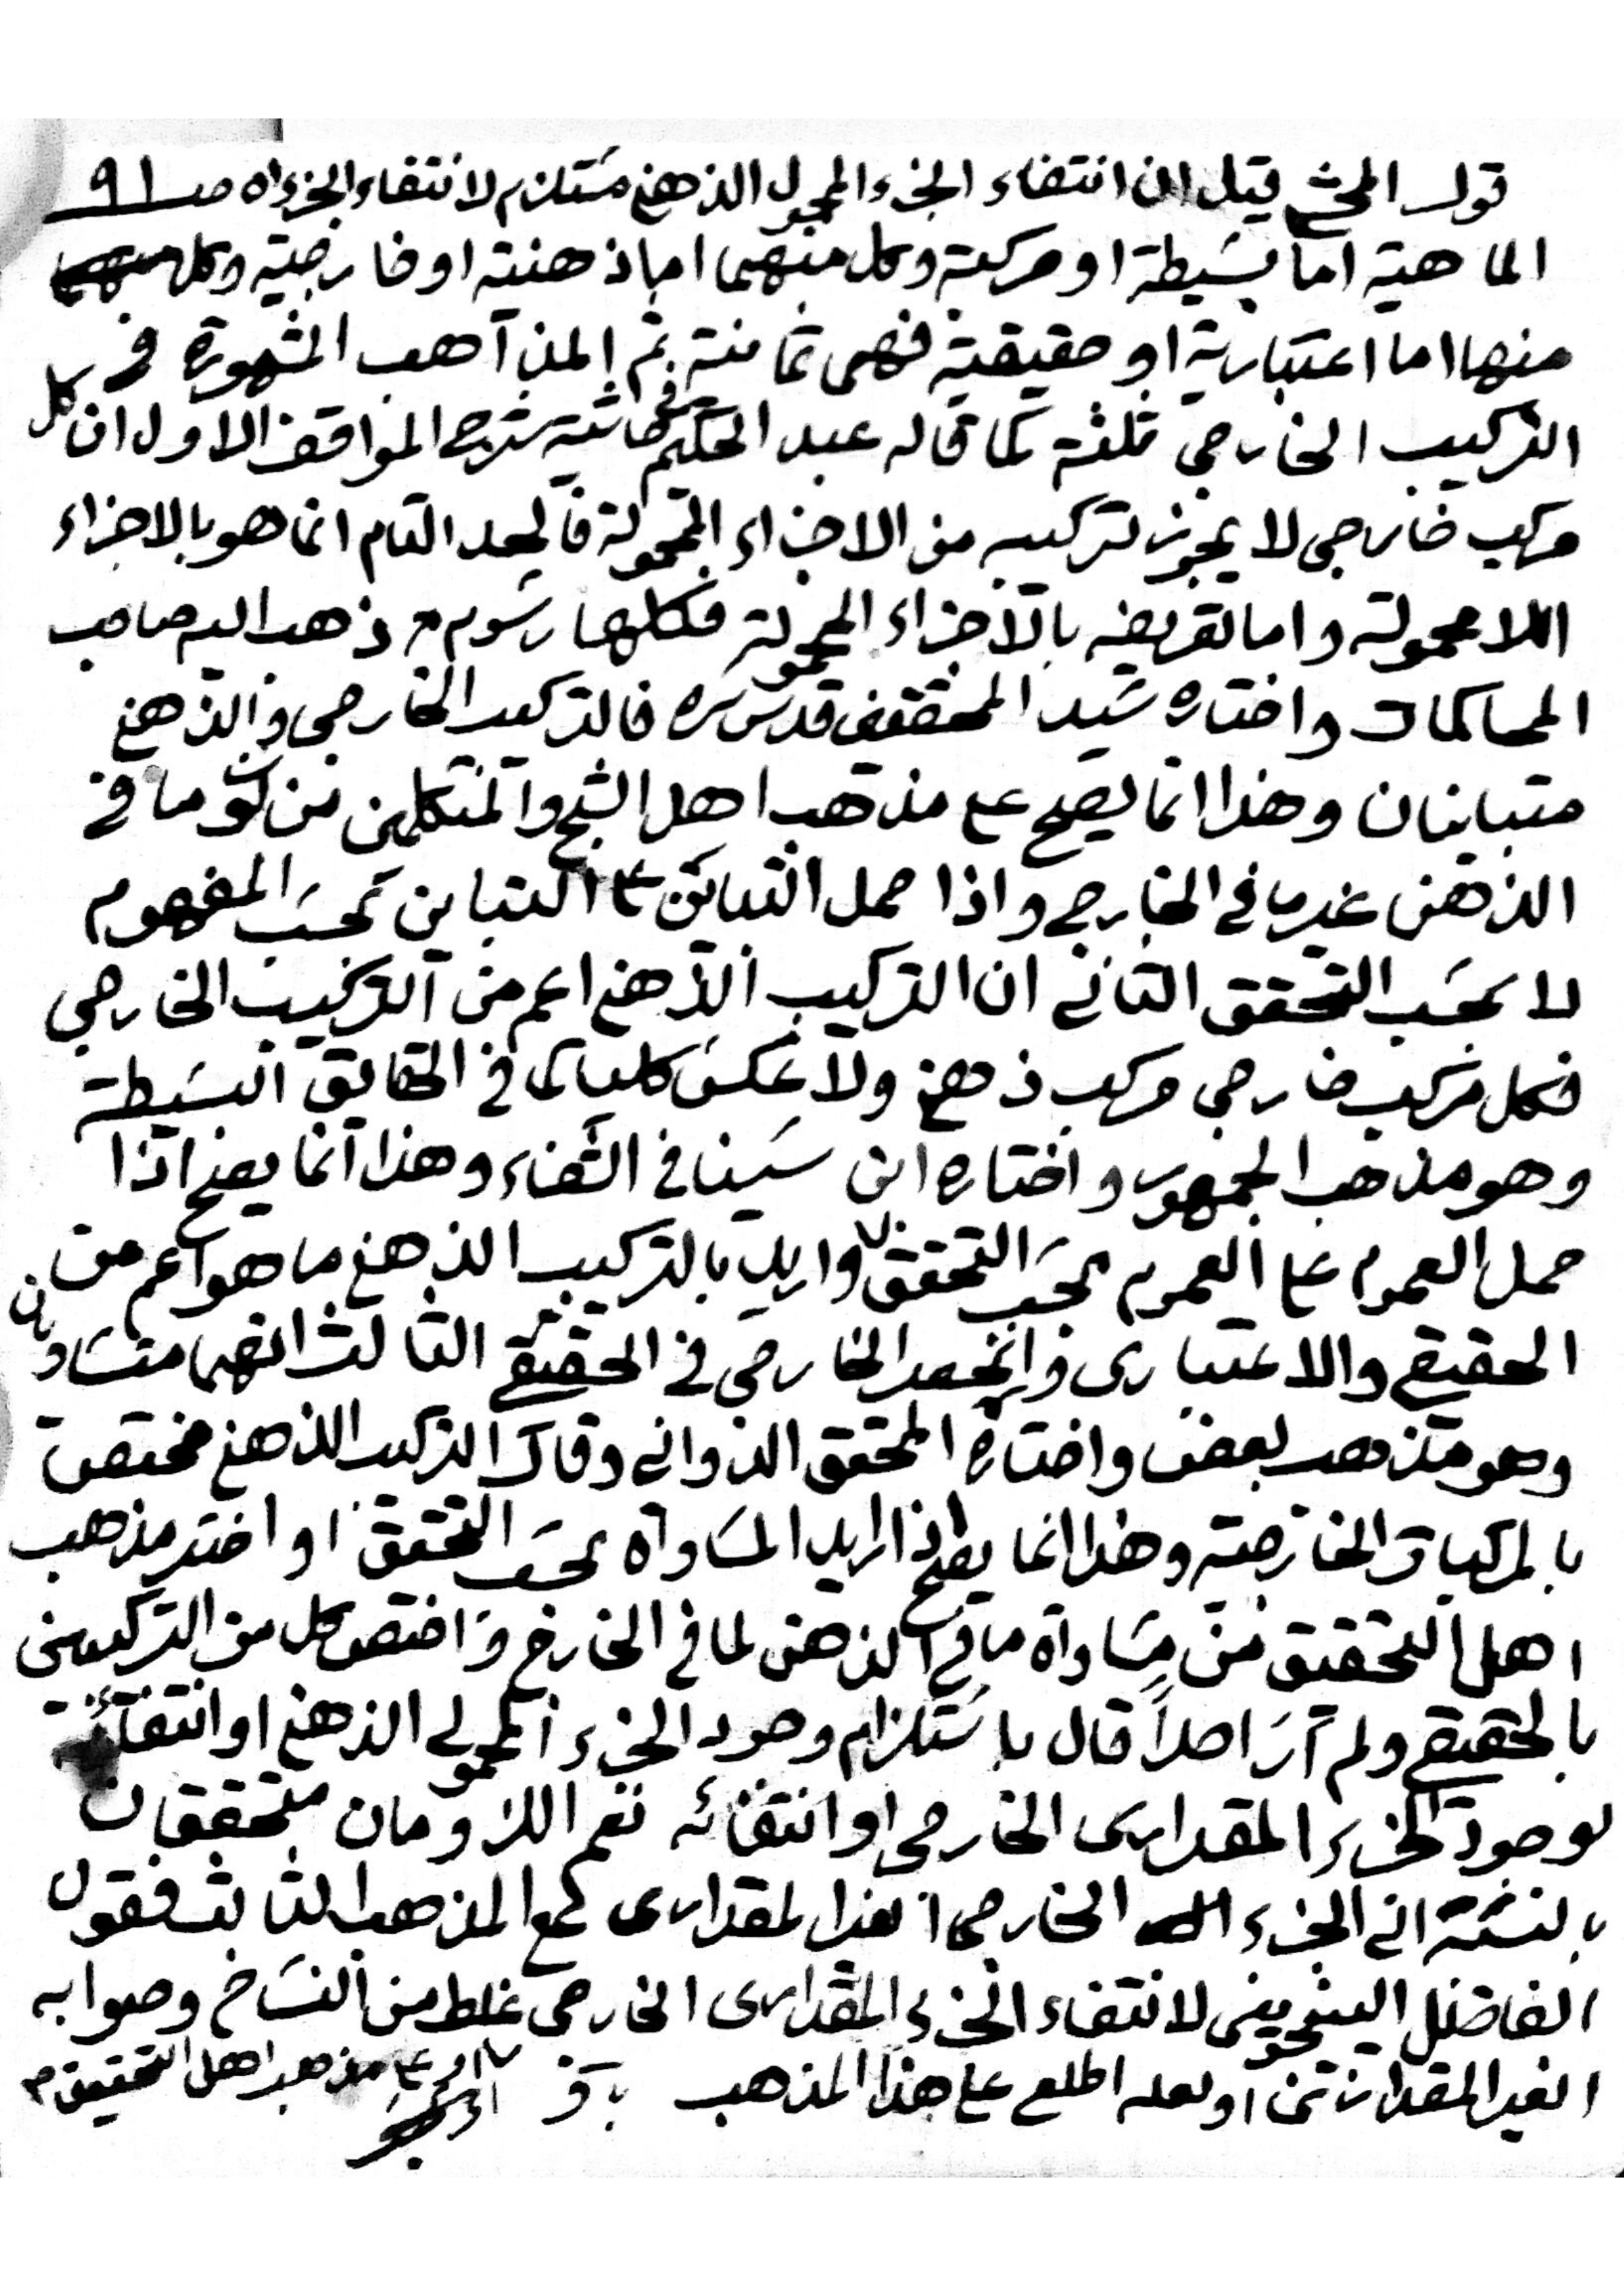 قول المحشي قيل ان انتفاء الجزء المحمول الذهني مستلزم لانتفاء الجزء اه صـ ٩١
الماهية اما بسيطة او مركبة وكل منهما اما ذهنية او خارجية وكل منهما
منها اما اعتبارية او حقيقية فهى ثمانية ثم المذاهب المشهورة في
التركيب الخارجي ثلثة كما قاله عبد الحكيم في حاشية شرح المواقف الاول ان كل
مركب خارجى لا يجوز تركيبه من الاجزاء المحمولة فالحد التام انما هو بالاجزاء
اللامحمولة واما تعريفه بالاجزاء المحمولة فكلها رسوم ذهب اليه صاحب
المحاكمات واختاره سيد المحققين قدس سره فالتركيب الخارجى والذهني
متباينان وهذا انما يصح على مذهب اهل الشبح والمتكلمين من كون ما في
الذهن غير ما في الخارج واذا حمل التباين على التباين بحسب المفهوم
لا بحسب التحقق الثاني ان التركيب الذهني اعم من التركيب الخارجي
فكل مركب خارجي مركب ذهني ولا عكس كليا كما في الحقايق البسيطة
وهو مذهب الجمهور واختاره ابن سينا في الشفاء وهذا انما يصح اذا
حمل العموم على العموم بحسب التحقق واريد بالتركيب الذهني ما هو اعم من
الحقيقي والاعتبارى وانحصر الخارجي في الحقيقي الثالث انهما متساويان
وهو مذهب بعض واختاره المحقق الدواني وقال التركيب الذهني مختص
بالمركبات الخارجية وهذا انما يصح اذا اريد المساواة بحسب التحقق او اختير مذهب
اهل التحقيق من مساواة ما في الذهن لما في الخارج واختص كل من التركيبين
بالحقيقي ولم ار اصلاً قال باستلزام وجود الجزء المحمولى الذهني او انتفائه
لوجود الجزء المقدارى الخارجى او انتفائه نعم اللزومان متحققان
بالنسبة الى الجزء الخارجى الغير المقدارى على المذهب الثالث فقول
الفاضل البينجويني لانتفاء الجزء المقدارى الخارجى غلط من النساخ وصوابه
الغير المقدارى او لعله اطلع على هذا المذهب على مذهب اهل التحقيق